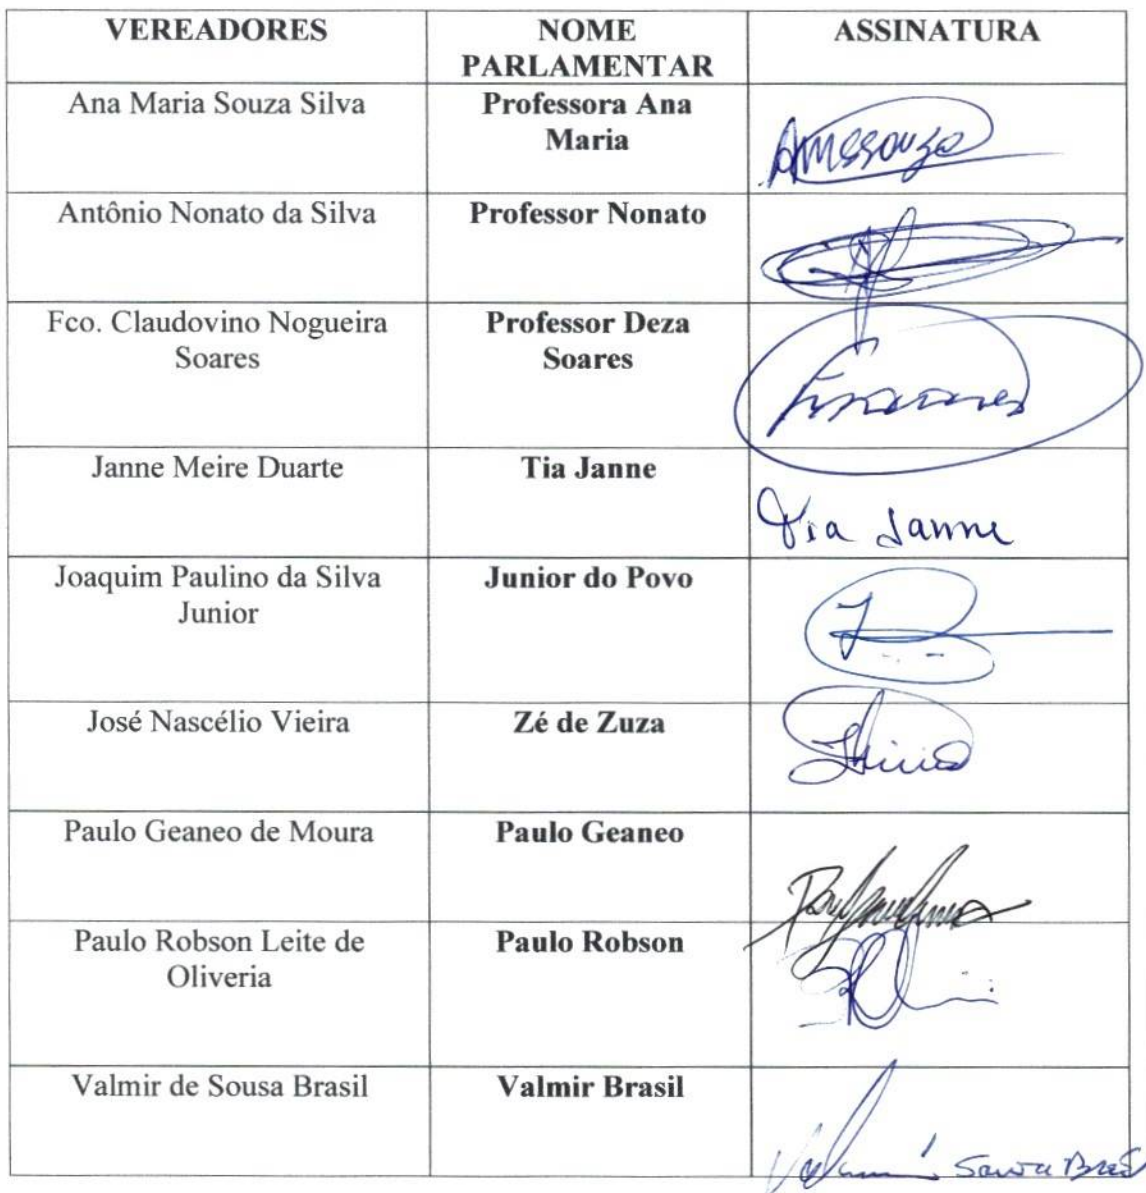 VEREADORES
NOME
PARLAMENTAR
ASSINATURA
Ana Maria Souza Silva
Professora Ana
Maria
Amssouza
Antônio Nonato da Silva
Professor Nonato
Fco. Claudovino Nogueira
Soares
Professor Deza
Soares
Janne Meire Duarte
Tia Janne
Tia Janne
Joaquim Paulino da Silva
Junior
Junior do Povo
José Nascélio Vieira
Zé de Zuza
Paulo Geaneo de Moura
Paulo Geaneo
Paulo Robson Leite de
Oliveria
Paulo Robson
Valmir de Sousa Brasil
Valmir Brasil